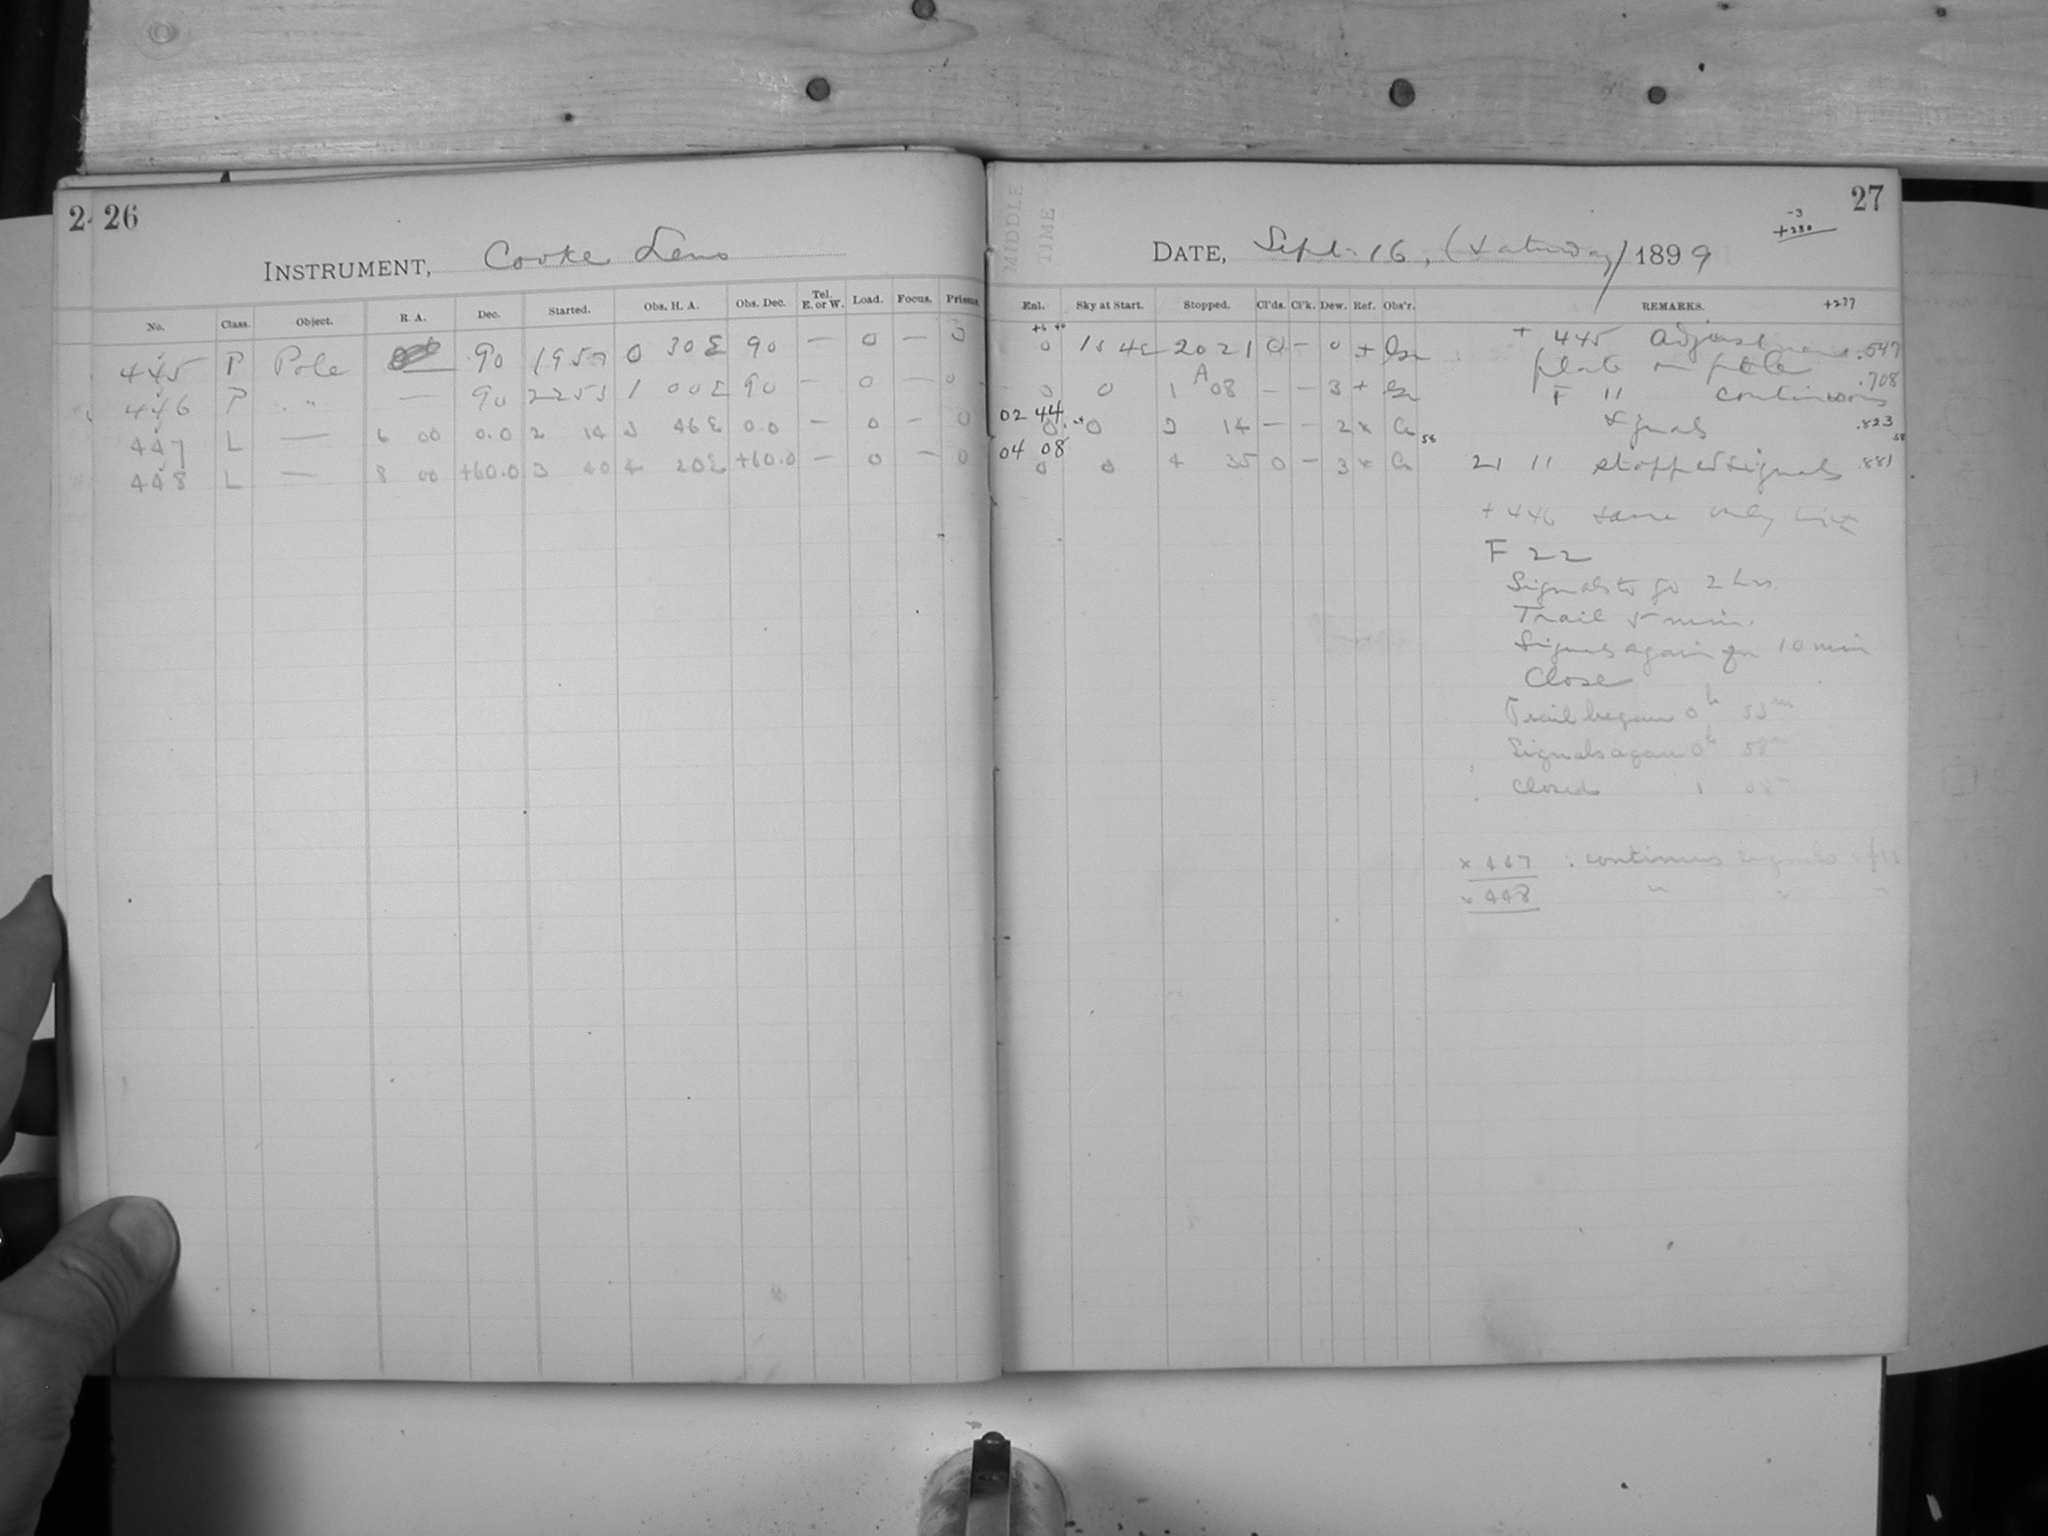 2
26
INSTRUMENT, Cooke Lens
No. Class. Object. R. A. Dec. Started. Obs. H. A. Obs. Dec. Tel. E. or W. Load. Focus. Prisms
445 P Pole 90 1957 0 30 E 90 — 0 — 0
446 P " — 90 2253 1 00 E 90 — 0 — 0
447 L — 6 00 0.0 2 14 3 46 E 0.0 — 0 — 0
448 L — 8 00 +60.0 3 40 4 20 E +60.0 — 0 — 0
MIDDLE
TIME
27
-3
+280
DATE, Sept. 16, (Saturday) 1899
Enl. Sky at Start. Stopped. Cl'ds. Cl'k. Dew. Ref. Obs'r. REMARKS. +277
0 2021 — 0 +
0 0 1 08 — — 3 +
02 44 0 0 3 14 — — 2 x
04 08 0 0 4 35 0 — 3 x
+ 445 Adjustment .547
plate on pole .708
F 11 continuous
signals .823
21 11 stopped signals .881
+ 446 same only with
F 22
Signals to go 2 hrs.
Trail 5 min.
Signals again for 10 min
Close
Trail began 0h 53m
Signals again 0h 58m
Closed 1 08m
x 447 : continuous signals
x 448 " " "